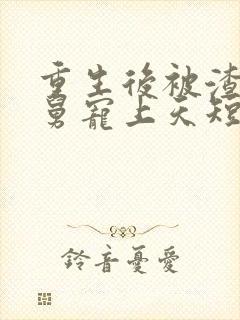 重生後被渣
舅寵上天短
鈴音憂愛